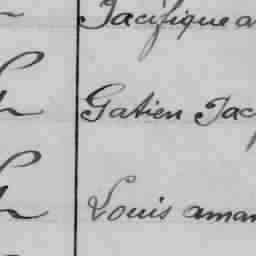 Pacifique a
Gatien Jac
Louis aman